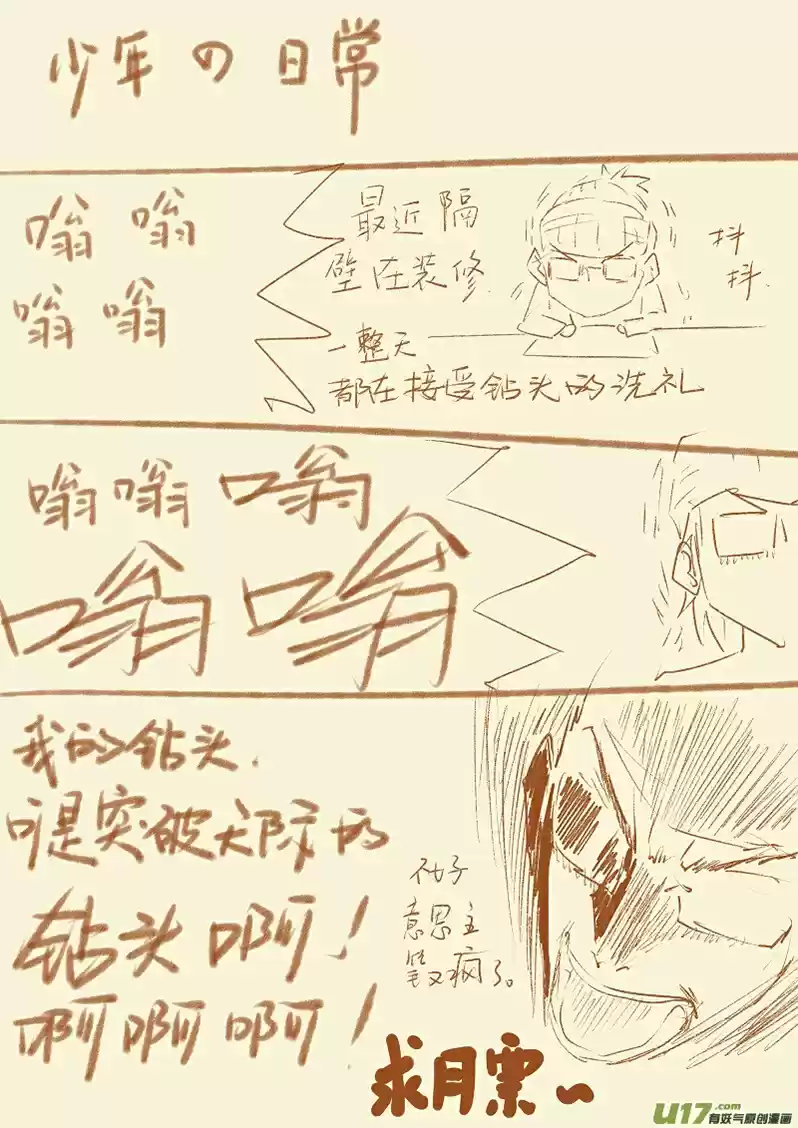 少年の日常
嗡 嗡
嗡 嗡
最近隔
壁在装修
抖
抖
一整天
都在接受钻头的洗礼
嗡 嗡 嗡
嗡 嗡
我的钻头
可是突破天际的
钻头啊！
啊啊啊！
不好
意思主
笔又疯了。
求月票~
U17.com
有妖气原创漫画